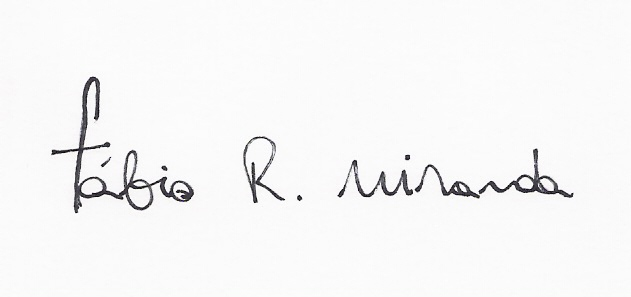 Fábio R. Miranda